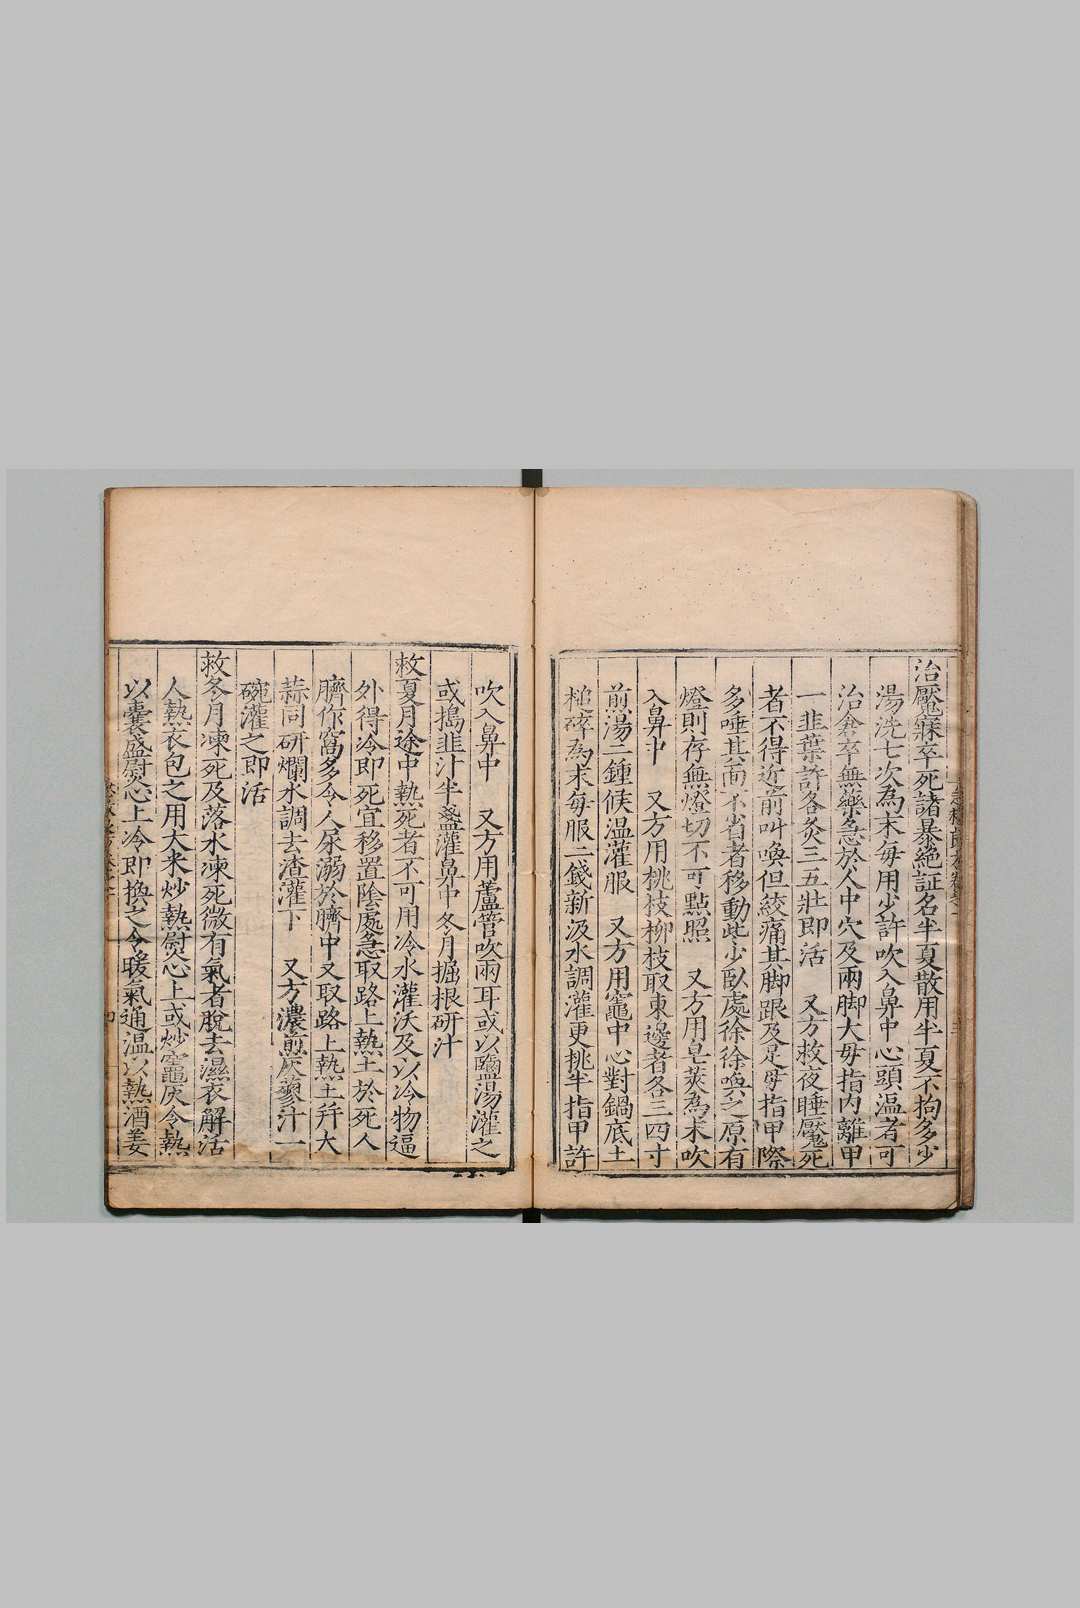 治魘寐卒死諸暴絶証名半夏散用半夏不拘多少
湯洗七次為末每用少許吹入鼻中心頭温者可
治倉卒無藥急於人中穴及兩脚大毋指内離甲
一韭葉許各灸三五壯即活　又方救夜睡魘死
者不得近前叫喚但絞痛其脚跟及足毋指甲際
多唾其面不省者移動些少臥處徐徐喚之原有
燈則存無燈切不可點照　又方用皂莢為末吹
入鼻中　又方用桃枝柳枝取東邊者各三四寸
煎湯二鍾候温灌服　又方用竈中心對鍋底土
槌碎為末每服二錢新汲水調灌更挑半指甲許
吹入鼻中　又方用蘆管吹兩耳或以鹽湯灌之
或搗韭汁半盞灌鼻中冬月掘根研汁
救夏月途中熱死者不可用冷水灌沃及以冷物逼
外得冷即死宜移置陰處急取路上熱土於死人
臍作窩多令人尿溺於臍中又取路上熱土并大
蒜同研爛水調去渣灌下　又方濃煎灰蓼汁一
碗灌之即活
救冬月凍死及落水凍死微有氣者脫去濕衣解活
人熱衣包之用大米炒熱熨心上或炒竈灰令熱
以囊盛熨心上冷即換之令暖氣通温以熱酒姜